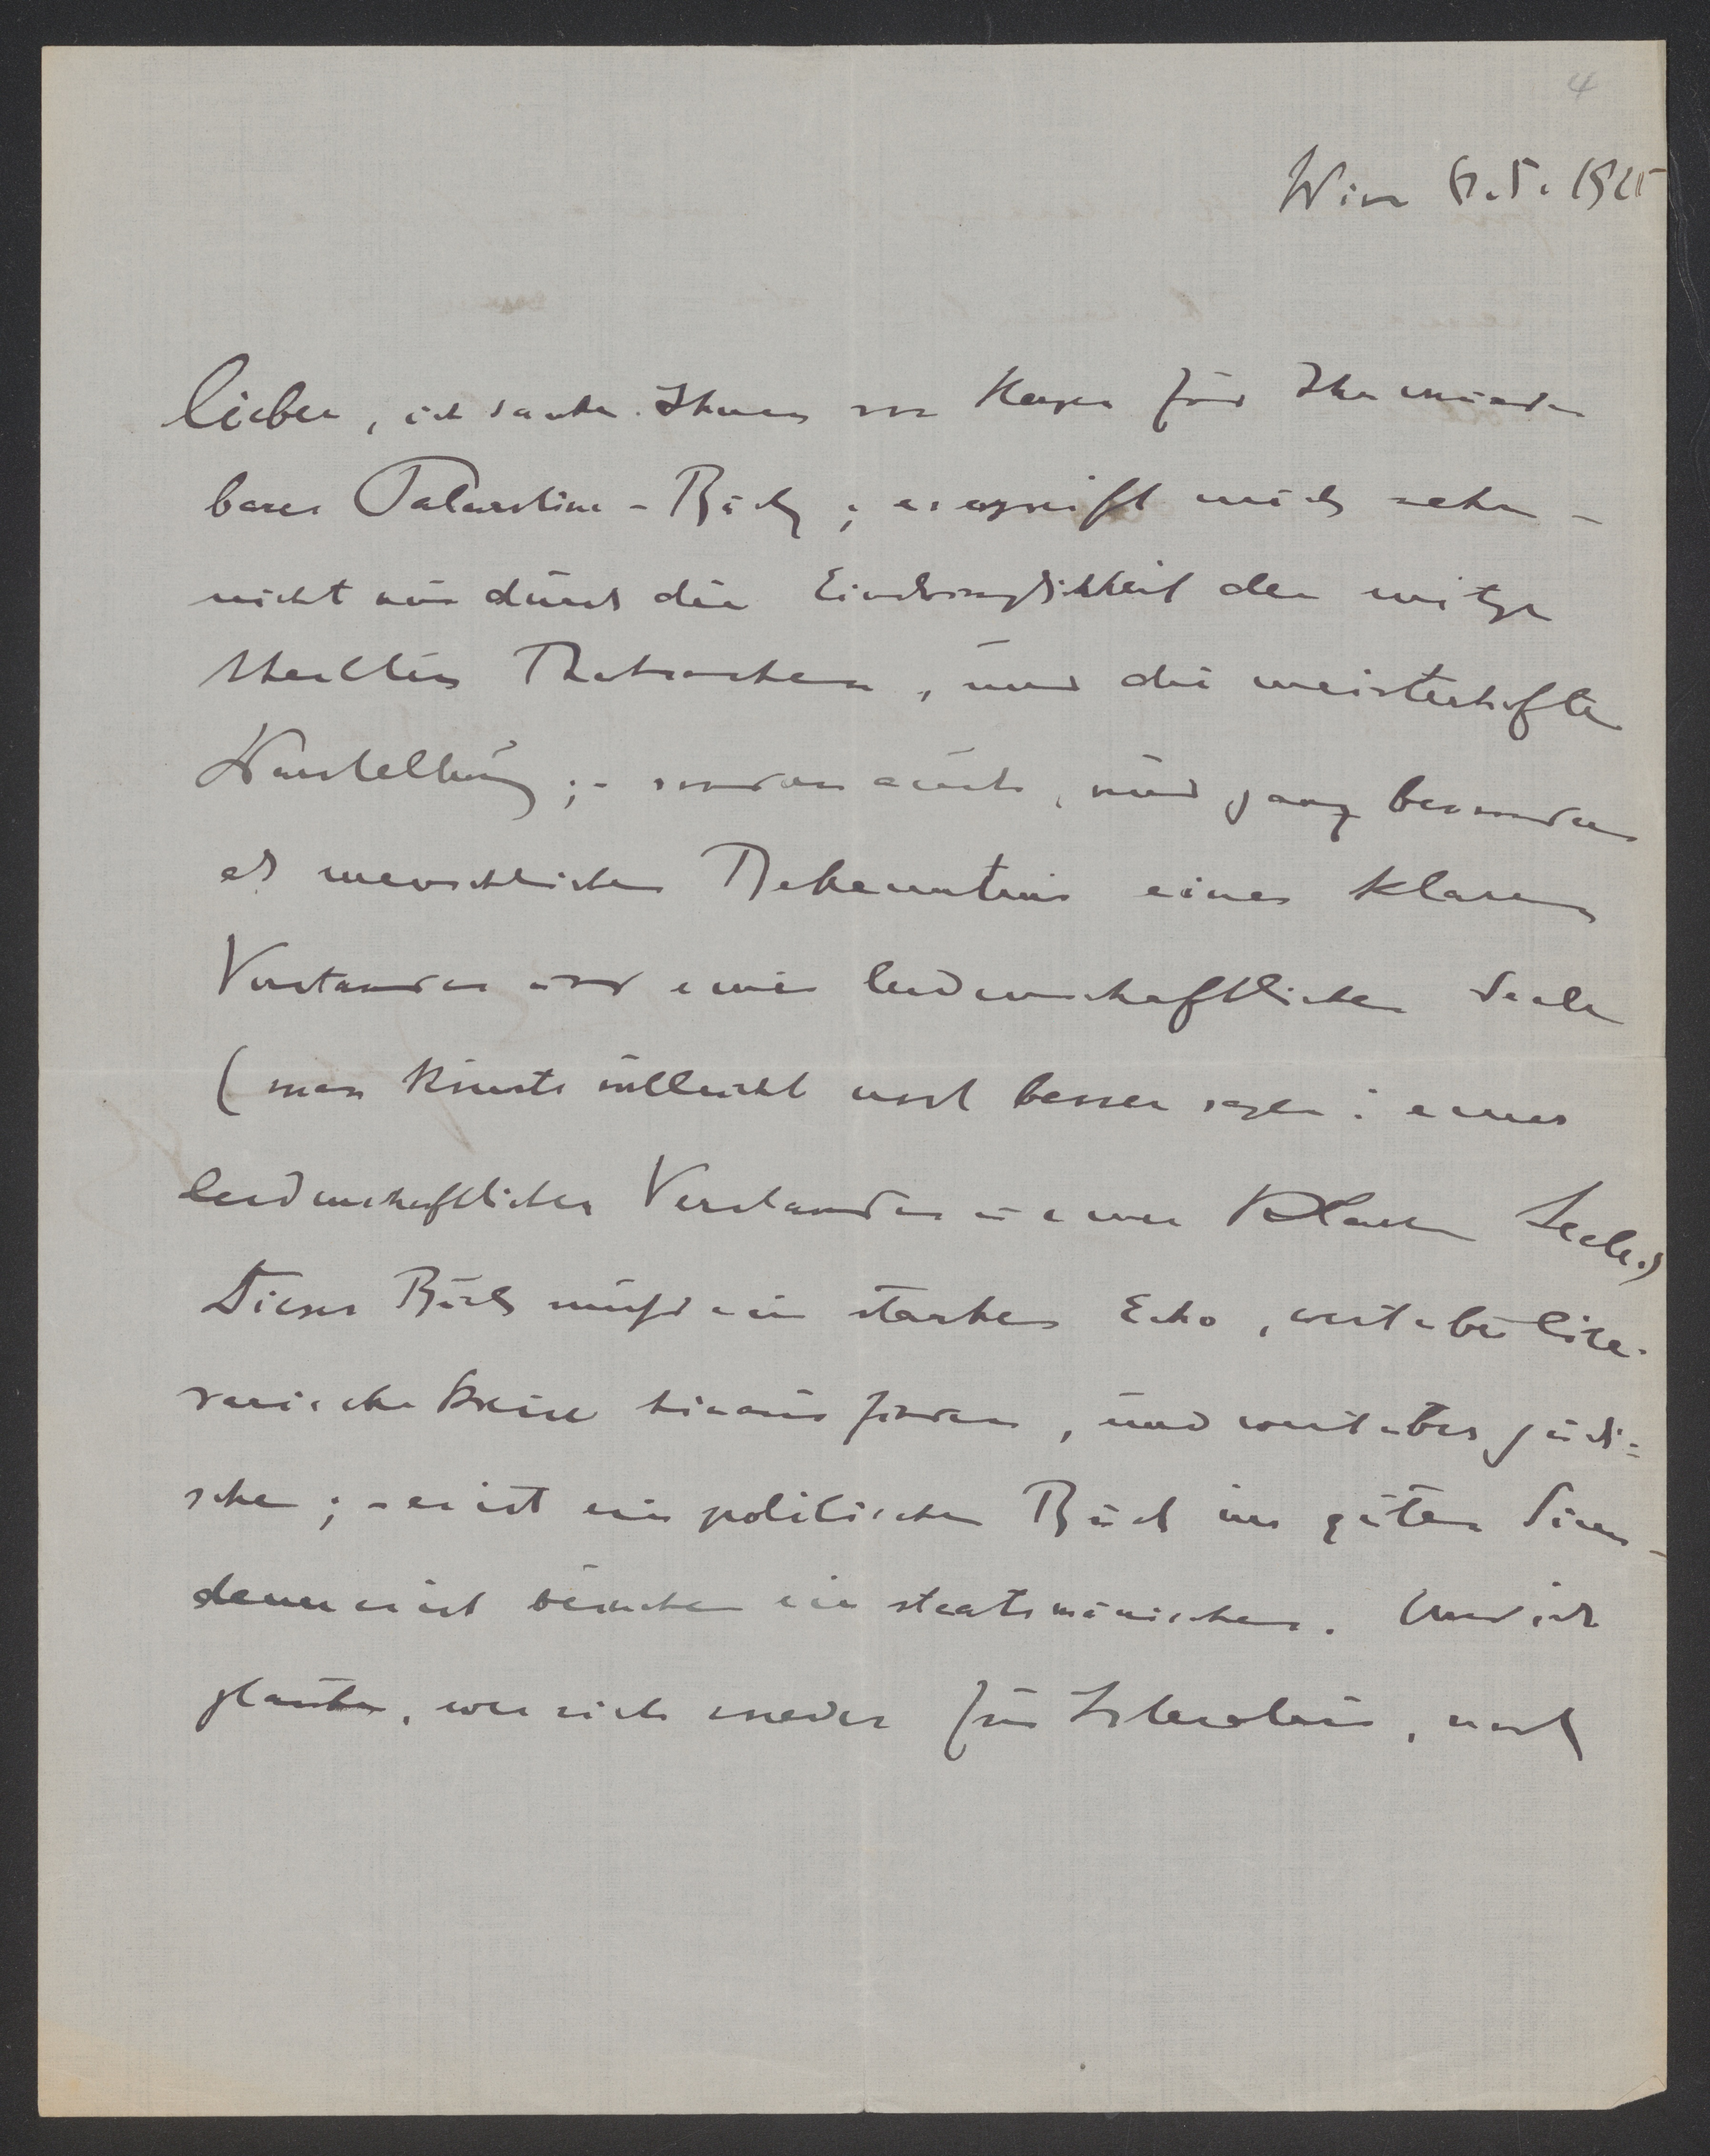 4
Wien 6.5.1925
Lieber, ich danke Ihnen von Herzen für Ihr wunder
bares Palaestina-Buch; es ergreift mich sehr -
nicht nur durch die Eindringlichkeit der mitge
theilten Thatsachen, und die meisterhafte
Darstellung; - sondern auch, und ganz besonders
als menschliches Bekenntnis eines klaren
Verstandes und einer leidenschaftlichen Seele
(man könnte vielleicht noch besser sagen: eines
leidenschaftlichen Verstandes u einer klaren Seele.)
Dieses Buch muss ein starkes Echo, weit über lite-
rarische Kreise hinaus finden, und weit über jüdi=
sche; - es ist ein politisches Buch im guten Sinn -
denn es ist beinahe ein staatsmännisches. Und ich
glaube, wer sich weder für Literatur, noch